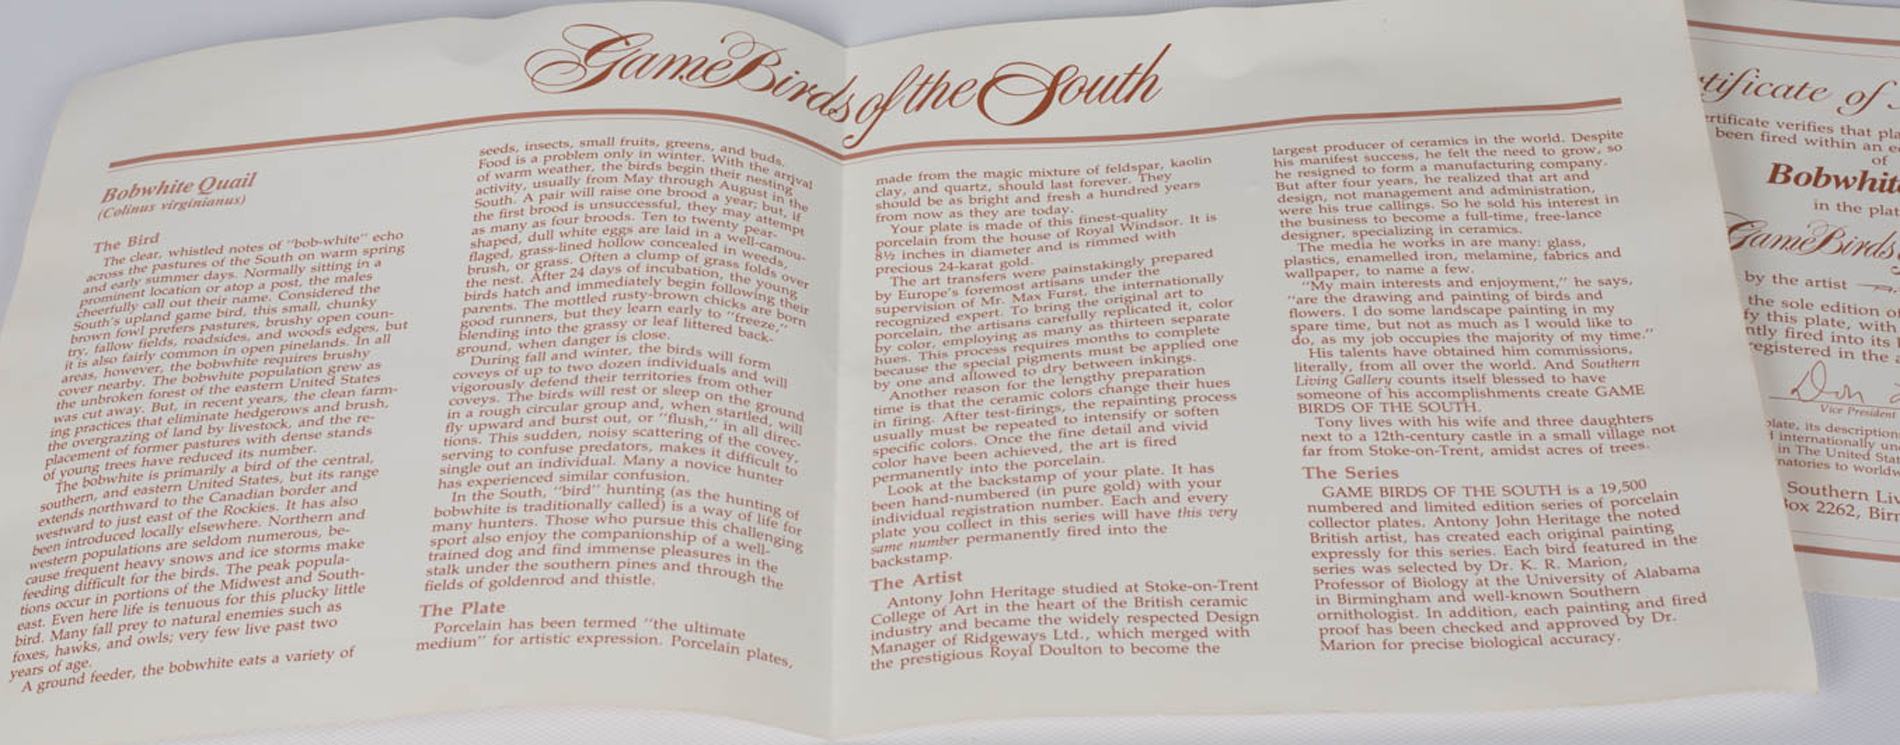 Game Birds of the South
Bobwhite Quail
(Colinus virginianus)
The Bird
The clear, whistled notes of "bob-white" echo
across the pastures of the South on warm spring
and early summer days. Normally sitting in a
prominent location or atop a post, the males
cheerfully call out their name. Considered the
South's upland game bird, this small, chunky
brown fowl prefers pastures, brushy open coun-
try, fallow fields, roadsides, and woods edges, but
it is also fairly common in open pinelands. In all
areas, however, the bobwhite requires brushy
cover nearby. The bobwhite population grew as
the unbroken forest of the eastern United States
was cut away. But, in recent years, the clean farm-
ing practices that eliminate hedgerows and brush,
the overgrazing of land by livestock, and the re-
placement of former pastures with dense stands
of young trees have reduced its number.
The bobwhite is primarily a bird of the central,
southern, and eastern United States, but its range
extends northward to the Canadian border and
westward to just east of the Rockies. It has also
been introduced locally elsewhere. Northern and
western populations are seldom numerous, be-
cause frequent heavy snows and ice storms make
feeding difficult for the birds. The peak popula-
tions occur in portions of the Midwest and South-
east. Even here life is tenuous for this plucky little
bird. Many fall prey to natural enemies such as
foxes, hawks, and owls; very few live past two
years of age.
A ground feeder, the bobwhite eats a variety of
seeds, insects, small fruits, greens, and buds.
Food is a problem only in winter. With the arrival
of warm weather, the birds begin their nesting
activity, usually from May through August in the
South. A pair will raise one brood a year; but, if
the first brood is unsuccessful, they may attempt
as many as four broods. Ten to twenty pear-
shaped, dull white eggs are laid in a well-camou-
flaged, grass-lined hollow concealed in weeds,
brush, or grass. Often a clump of grass folds over
the nest. After 24 days of incubation, the young
birds hatch and immediately begin following their
parents. The mottled rusty-brown chicks are born
good runners, but they learn early to "freeze,"
blending into the grassy or leaf littered back-
ground, when danger is close.
During fall and winter, the birds will form
coveys of up to two dozen individuals and will
vigorously defend their territories from other
coveys. The birds will rest or sleep on the ground
in a rough circular group and, when startled, will
fly upward and burst out, or "flush," in all direc-
tions. This sudden, noisy scattering of the covey,
serving to confuse predators, makes it difficult to
single out an individual. Many a novice hunter
has experienced similar confusion.
In the South, "bird" hunting (as the hunting of
bobwhite is traditionally called) is a way of life for
many hunters. Those who pursue this challenging
sport also enjoy the companionship of a well-
trained dog and find immense pleasures in the
stalk under the southern pines and through the
fields of goldenrod and thistle.
The Plate
Porcelain has been termed "the ultimate
medium" for artistic expression. Porcelain plates,
made from the magic mixture of feldspar, kaolin
clay, and quartz, should last forever. They
should be as bright and fresh a hundred years
from now as they are today.
Your plate is made of this finest-quality
porcelain from the house of Royal Windsor. It is
8½ inches in diameter and is rimmed with
precious 24-karat gold.
The art transfers were painstakingly prepared
by Europe's foremost artisans under the
supervision of Mr. Max Furst, the internationally
recognized expert. To bring the original art to
porcelain, the artisans carefully replicated it, color
by color, employing as many as thirteen separate
hues. This process requires months to complete
because the special pigments must be applied one
by one and allowed to dry between inkings.
Another reason for the lengthy preparation
time is that the ceramic colors change their hues
in firing. After test-firings, the repainting process
usually must be repeated to intensify or soften
specific colors. Once the fine detail and vivid
color have been achieved, the art is fired
permanently into the porcelain.
Look at the backstamp of your plate. It has
been hand-numbered (in pure gold) with your
individual registration number. Each and every
plate you collect in this series will have this very
same number permanently fired into the
backstamp.
The Artist
Antony John Heritage studied at Stoke-on-Trent
College of Art in the heart of the British ceramic
industry and became the widely respected Design
Manager of Ridgeways Ltd., which merged with
the prestigious Royal Doulton to become the
largest producer of ceramics in the world. Despite
his manifest success, he felt the need to grow, so
he resigned to form a manufacturing company.
But after four years, he realized that art and
design, not management and administration,
were his true callings. So he sold his interest in
the business to become a full-time, free-lance
designer, specializing in ceramics.
The media he works in are many: glass,
plastics, enamelled iron, melamine, fabrics and
wallpaper, to name a few.
"My main interests and enjoyment," he says,
"are the drawing and painting of birds and
flowers. I do some landscape painting in my
spare time, but not as much as I would like to
do, as my job occupies the majority of my time."
His talents have obtained him commissions,
literally, from all over the world. And Southern
Living Gallery counts itself blessed to have
someone of his accomplishments create GAME
BIRDS OF THE SOUTH.
Tony lives with his wife and three daughters
next to a 12th-century castle in a small village not
far from Stoke-on-Trent, amidst acres of trees.
The Series
GAME BIRDS OF THE SOUTH is a 19,500
numbered and limited edition series of porcelain
collector plates. Antony John Heritage the noted
British artist, has created each original painting
expressly for this series. Each bird featured in the
series was selected by Dr. K. R. Marion,
Professor of Biology at the University of Alabama
in Birmingham and well-known Southern
ornithologist. In addition, each painting and fired
proof has been checked and approved by Dr.
Marion for precise biological accuracy.
tificate of
rtificate verifies that pla
been fired within an e
of
Bobwhit
in the plat
Game Birds
by the artist
the sole edition o
fy this plate, with
ntly fired into its
registered in the
Don
Vice President
plate, its description
internationally us
in The United Stat
natories to world
Southern Liv
ox 2262, Birn